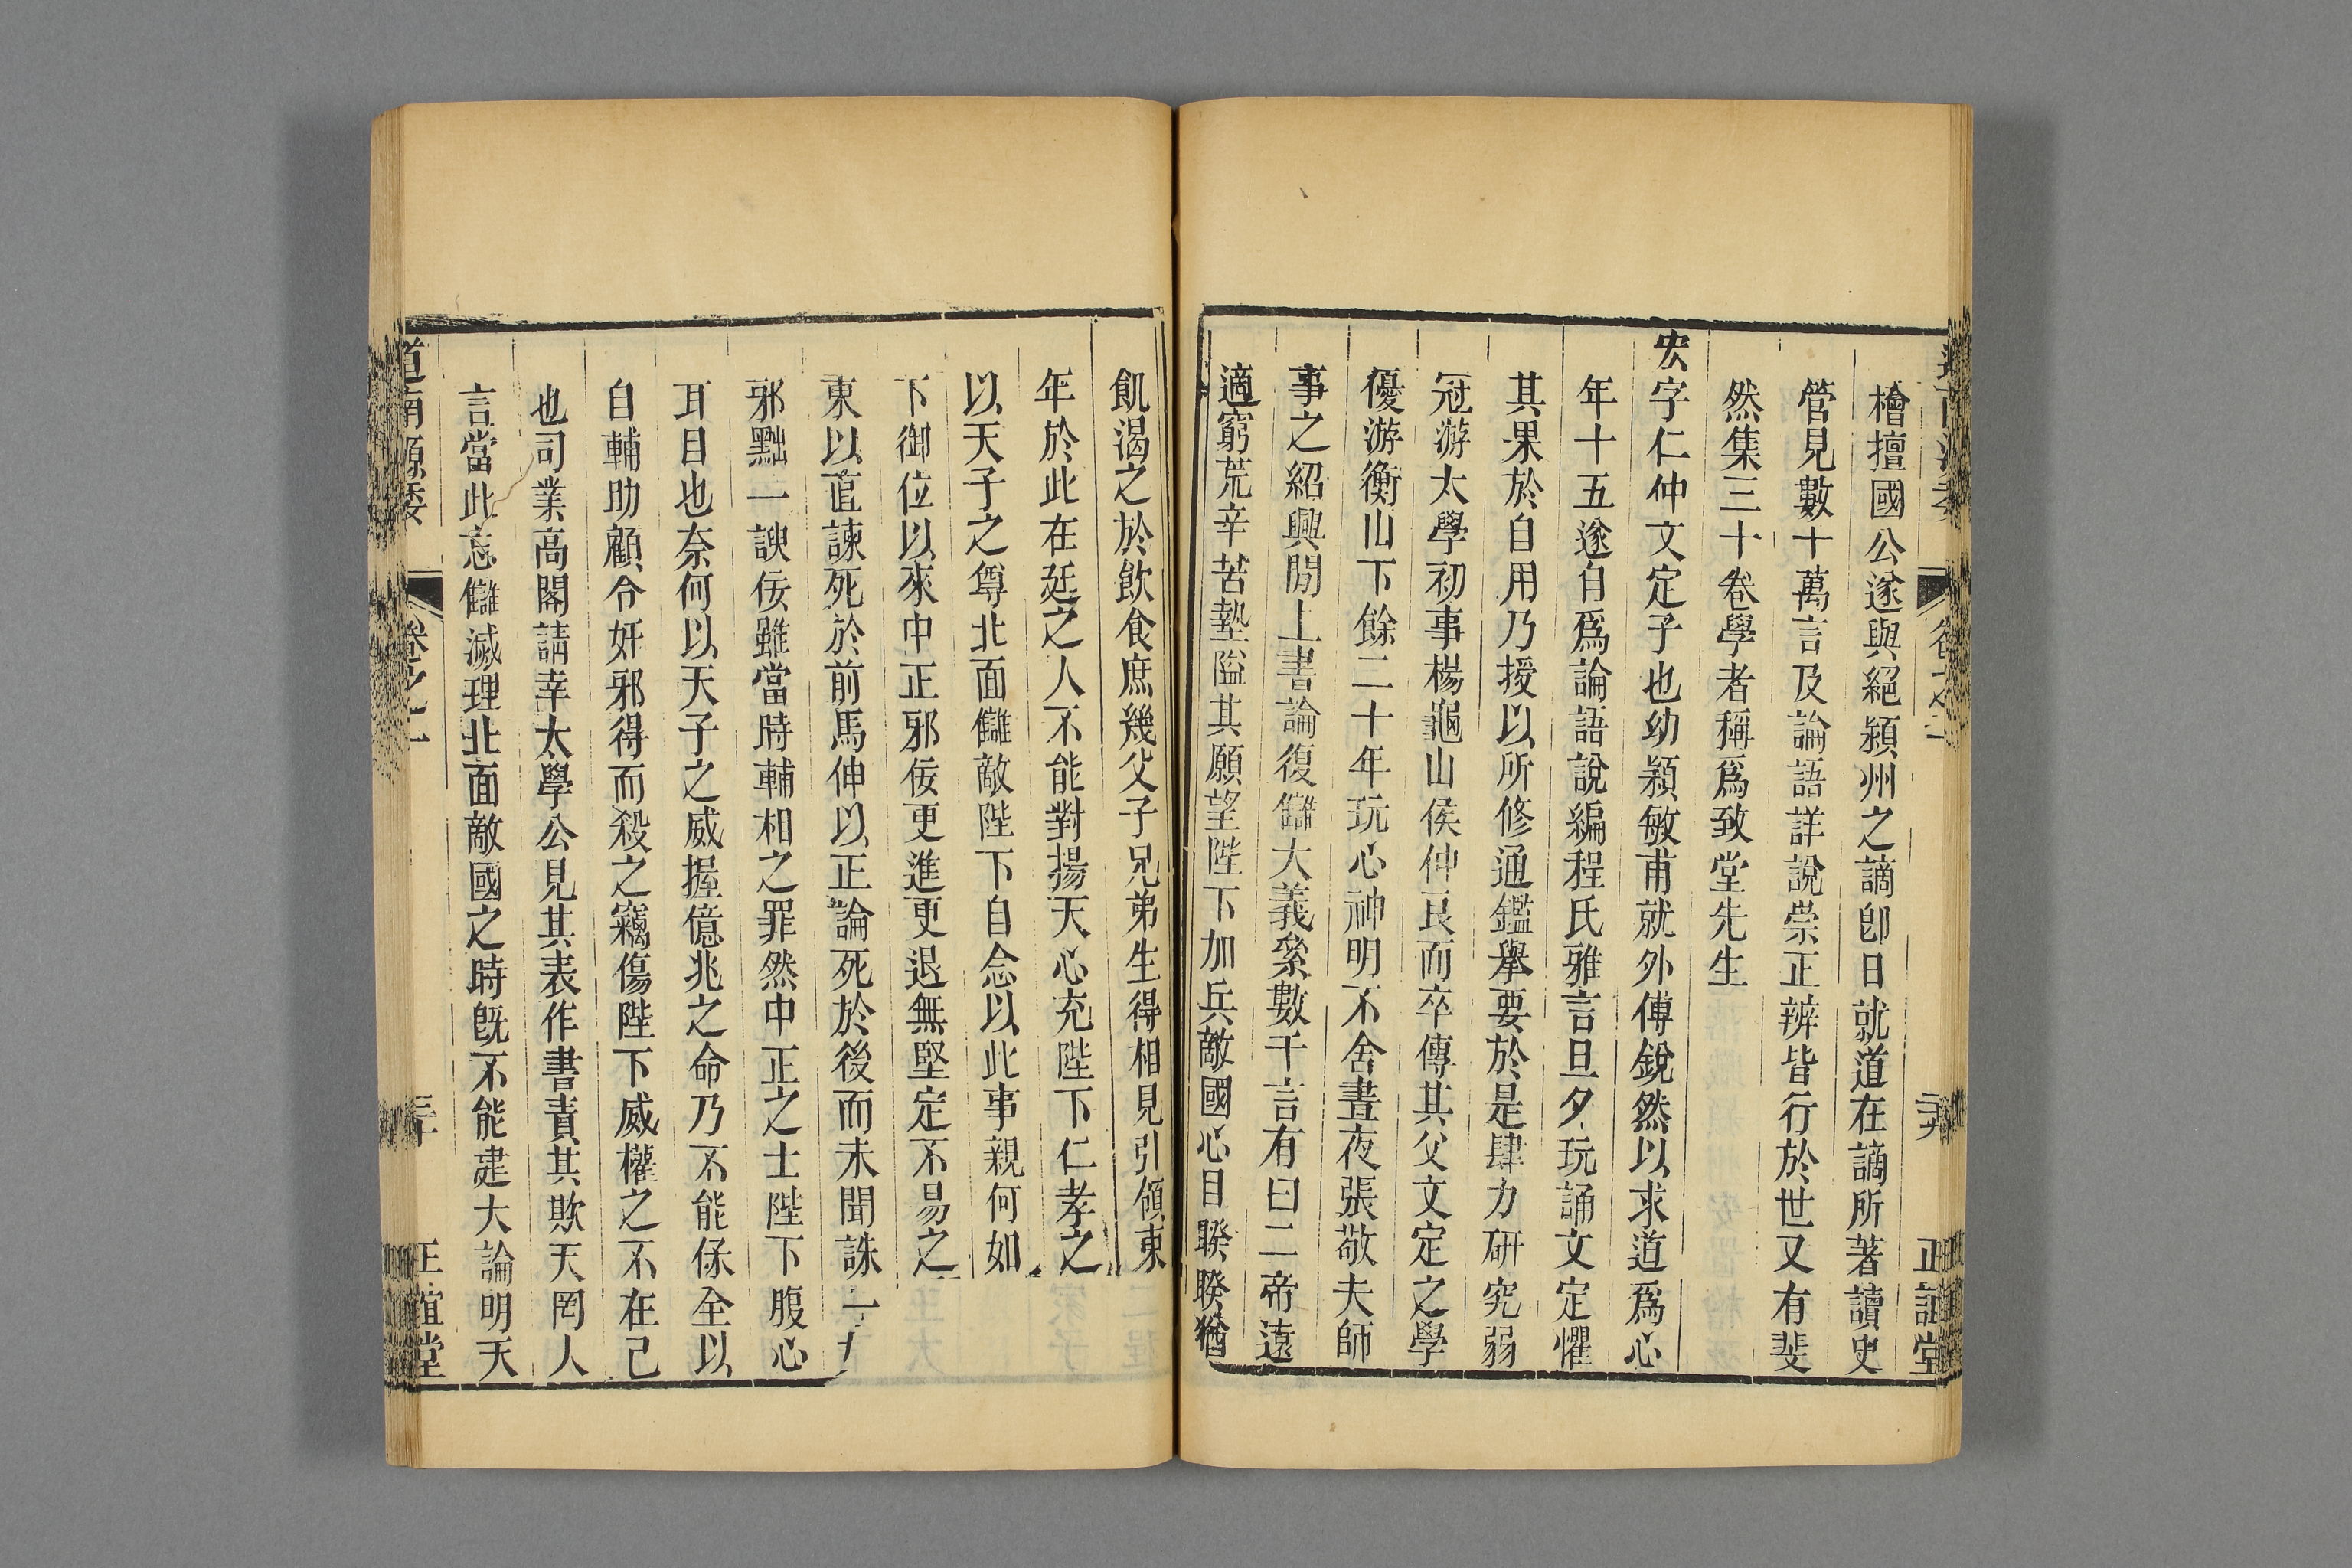 檜擅國公遂與絕潁州之謫卽日就道在謫所著讀史
管見數十萬言及論語詳說崇正辨皆行於世又有斐
然集三十卷學者稱爲致堂先生
宏字仁仲文定子也幼穎敏甫就外傅銳然以求道爲心
年十五遂自爲論語說編程氏雅言旦夕玩誦文定懼
其果於自用乃授以所修通鑑舉要於是肆力研究弱
冠游太學初事楊龜山侯仲良而卒傳其父文定之學
優游衡山下餘二十年玩心神明不舍晝夜張敬夫師
事之紹興閒上書論復讎大義絫數千言有曰二帝遠
適窮荒辛苦墊隘其願望陛下加兵敵國心目睽睽猶
飢渴之於飲食庶幾父子兄弟生得相見引領東
年於此在廷之人不能對揚天心充陛下仁孝之
以天子之尊北面讎敵陛下自念以此事親何如
下御位以來中正邪佞更進更退無堅定不易之
東以直諫死於前馬伸以正論死於後而未聞誅一
邪黜一諛佞雖當時輔相之罪然中正之士陛下腹心
耳目也奈何以天子之威握億兆之命乃不能保全以
自輔助顧令奸邪得而殺之竊傷陛下威權之不在己
也司業高閌請幸太學公見其表作書責其欺天罔人
言當此忘讎滅理北面敵國之時旣不能建大論明天
道南源委
卷之二
三十
正誼堂